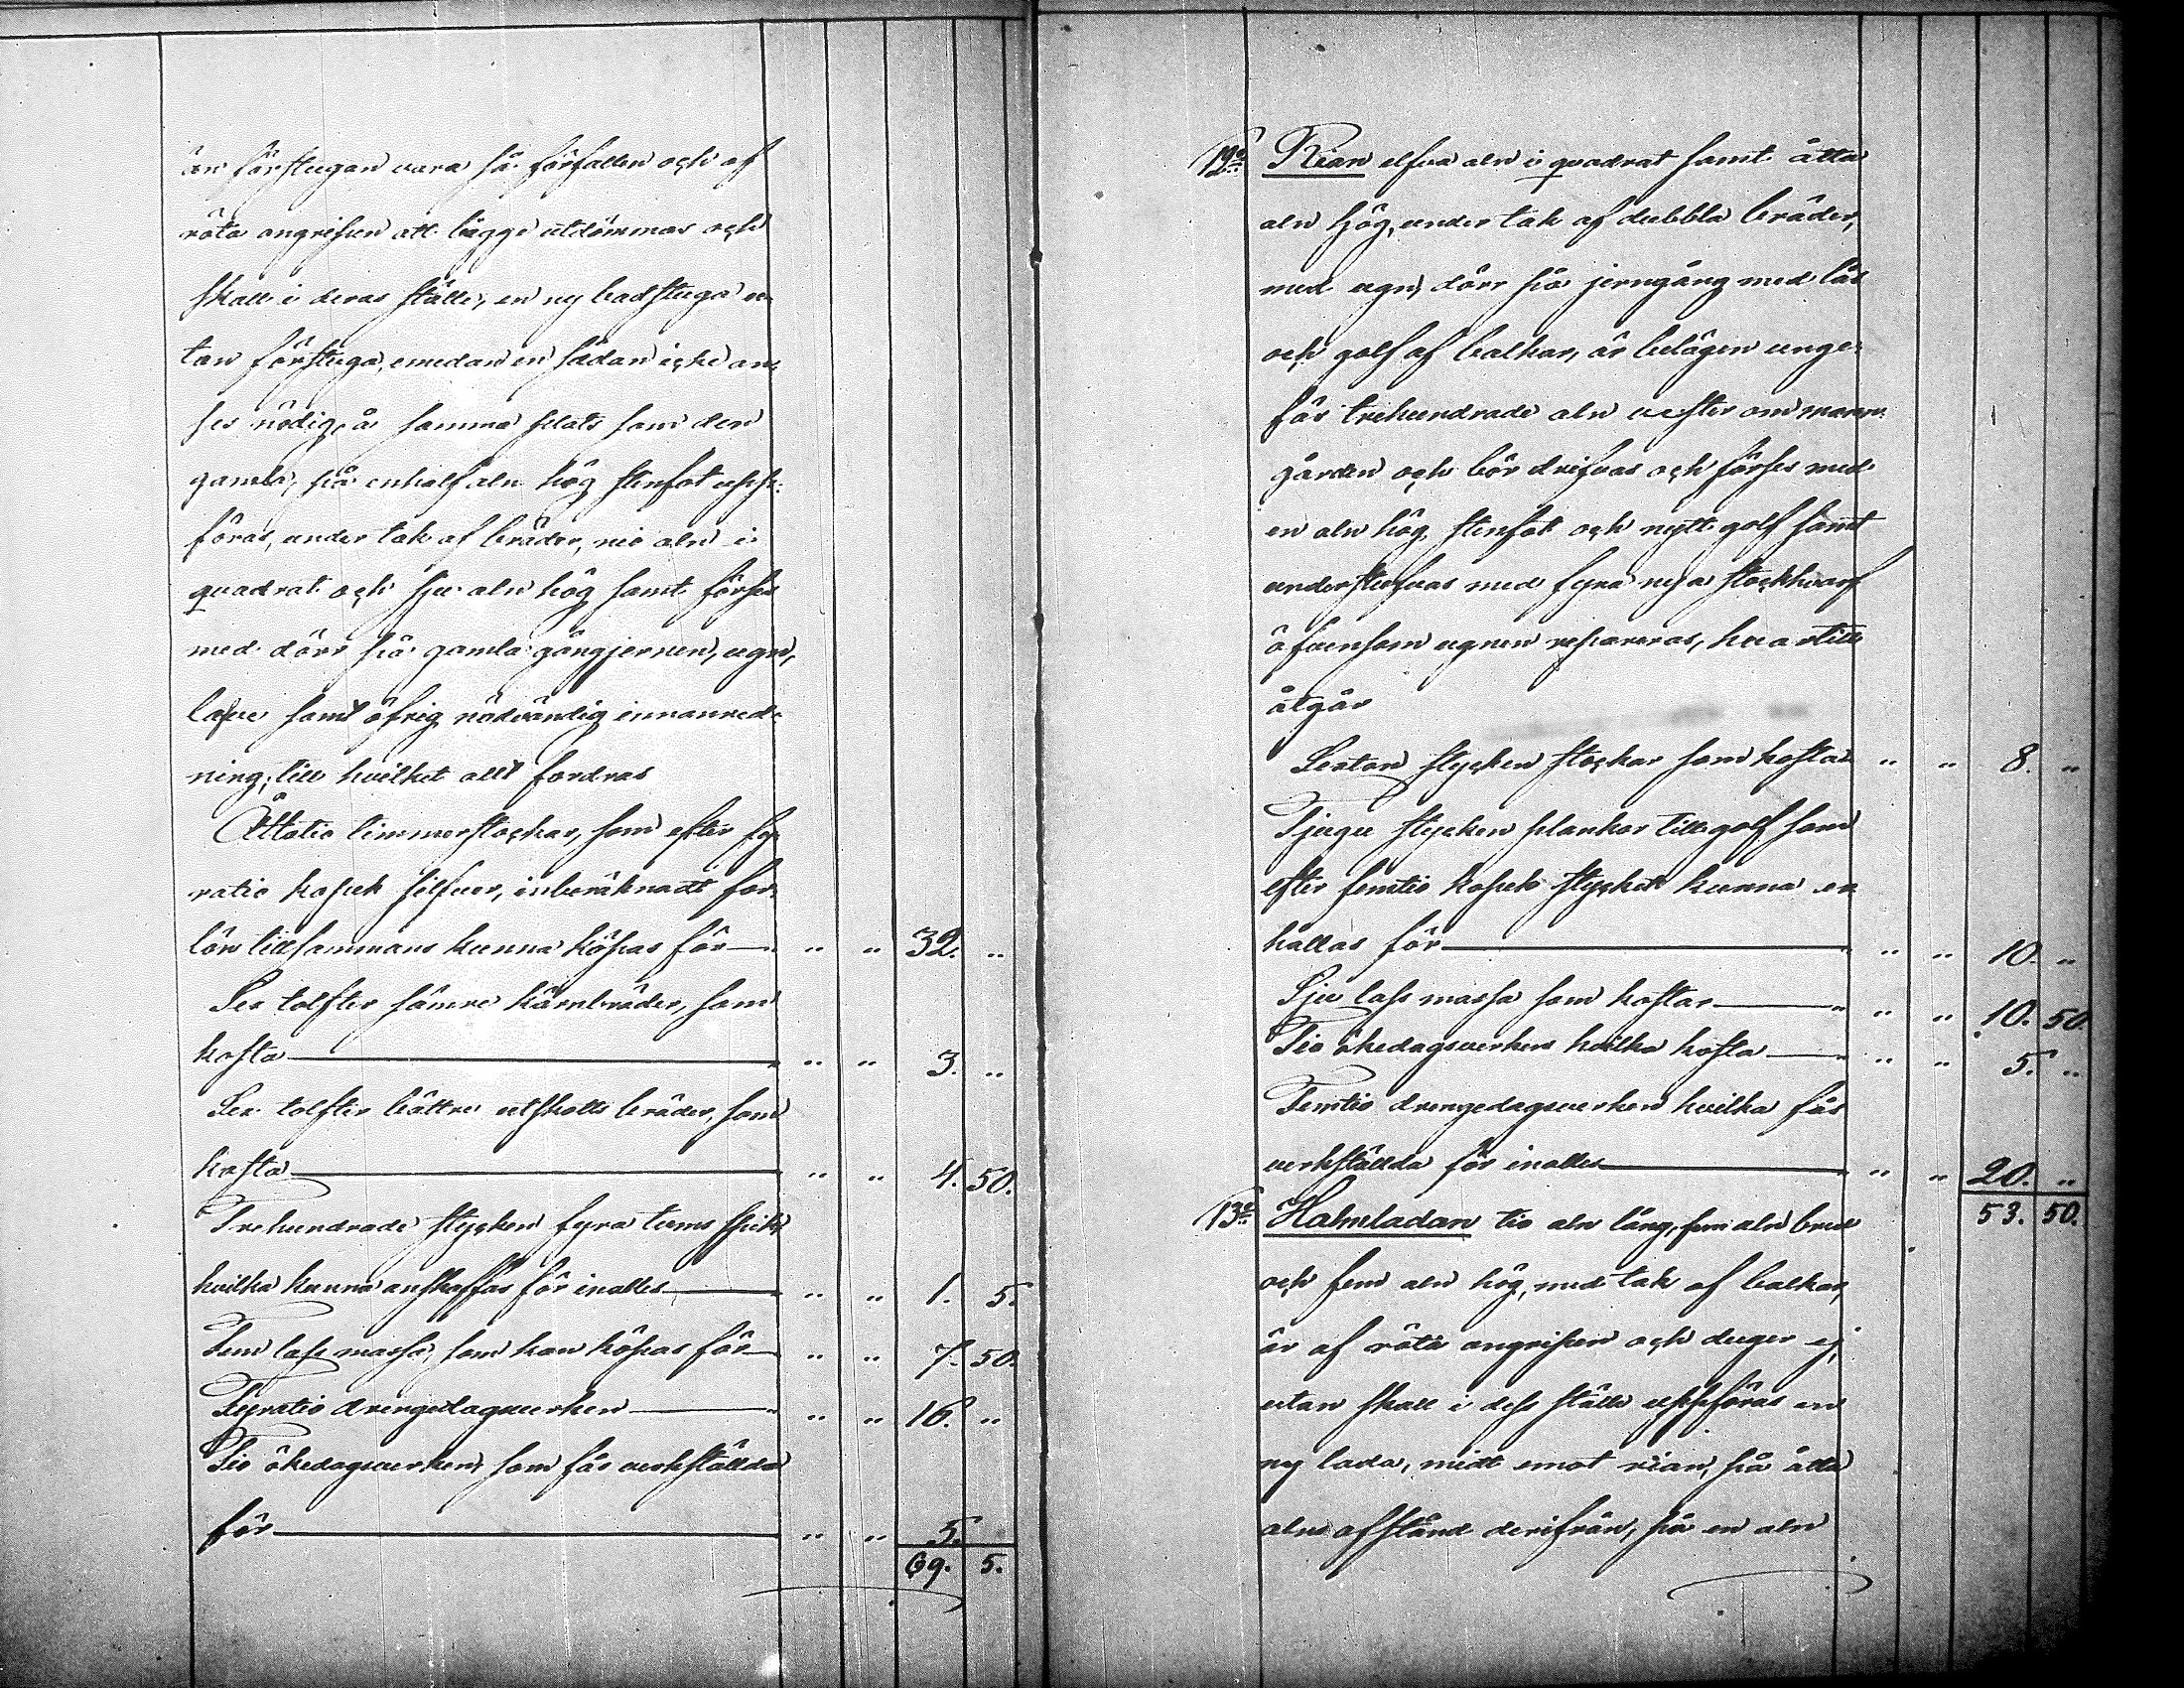 än förstugan vara så förfallen och af
röta angripen att bägge utdömmas och
skall i deras ställe, en ny badstuga u-
tan förstuga, emedan en sådan icke an-
ses nödig, å samma plats som den
gamla, på enhalf aln hög stenfot upp-
föras, under tak af bräder, nio aln i
quadrat och sju aln hög samt förses
med dörr på gamla gångjernen, ugn,
lafve samt öfrig nödvändig innanred-
ning; till hvilket allt fordras
Åttatio timmerstockar, som efter fy-
ratio kopek silfver, inberäknadt for-
lön tillsammans kunna köpas för — " " 32. "
Sex tolfter sämre kärnbräder, som
kosta — " " 3. "
Sex tolfter bättre utskotts bräder, som
kosta — " " 4. 50.
Trehundrade stycken fyra tums spik,
hvilka kunna anskaffas för inalles — " " 1. 5.
Fem lass massa, som kan köpas för — " " 7. 50.
Fyratio drengedagsverken — " " 16. "
Tio ökedagsverken, som fås verkställda
för — " " 5.
69. 5.
12o Rian elfva aln i quadrat samt åtta
aln hög, under tak af dubbla bräder,
med ugn, dörr på jerngång med lås
och golf af balkar, är belägen unge-
fär trehundrade aln vester om mann-
gården och bör drifvas och förses med
en aln hög stenfot och nytt golf samt
understufvas med fyra nya stockhvarf
äfvensom ugnen repareras, hvartill
åtgår
Sexton stycken stockar som kosta " " 8. "
Tjugu stycken plankor till golf som
efter femtio kopek stycket kunna er-
hållas för — " " 10. "
Sju lass massa som kostar — " " 10. 50.
Tio ökedagsverken hvilka kosta — " " 5. "
Femtio drengedagsverken hvilka fås
verkställda för inalles — " " 20. "
53. 50.
13o Halmladan tio aln lång, fem aln bred
och fem aln hög, med tak af balkar,
är af röta angripen och duger ej,
utan skall i dess ställe uppföras en
ny lada, midt emot rian, på åtta
alns afstånd derifrån, på en aln